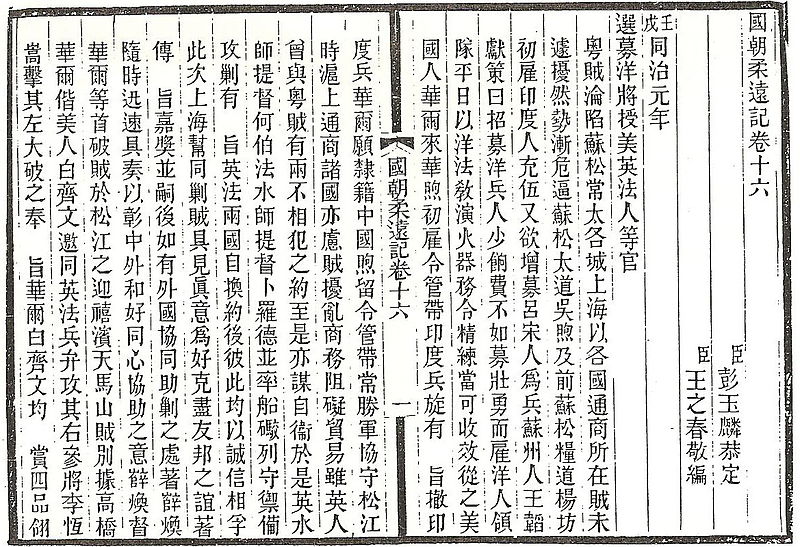 國朝柔遠記卷十六
臣彭玉麟恭定
臣王之春敬編
壬戌同治元年
選募洋將授美英法人等官
粵賊淪陷蘇松常太各城上海以各國通商所在賊未
遽擾然勢漸危逼蘇松太道吳煦及前蘇松糧道楊坊
初雇印度人充伍又欲增募呂宋人爲兵蘇州人王韜
獻策曰招募洋兵人少餉費不如募壯勇而雇洋人領
隊平日以洋法教演火器務令精練當可收效從之美
國人華爾來華煦初雇令管帶印度兵旋有 旨撤印
國朝柔遠記卷十六
一
度兵華爾願隸籍中國煦留令管帶常勝軍協守松江
時滬上通商諸國亦慮賊擾亂商務阻礙貿易雖英人
曾與粵賊有兩不相犯之約至是亦謀自衞於是英水
師提督何伯法水師提督卜羅德並率船礮列守禦備
攻剿有 旨英法兩國自換約後彼此均以誠信相孚
此次上海幫同剿賊具見眞意爲好克盡友邦之誼著
傳 旨嘉獎並嗣後如有外國協同助剿之處著薛煥
隨時迅速具奏以彰中外和好同心協助之意薛煥督
華爾等首破賊於松江之迎禧濱天馬山賊別據高橋
華爾偕美人白齊文邀同英法兵弁攻其右參將李恆
嵩擊其左大破之奉 旨華爾白齊文均 賞四品翎